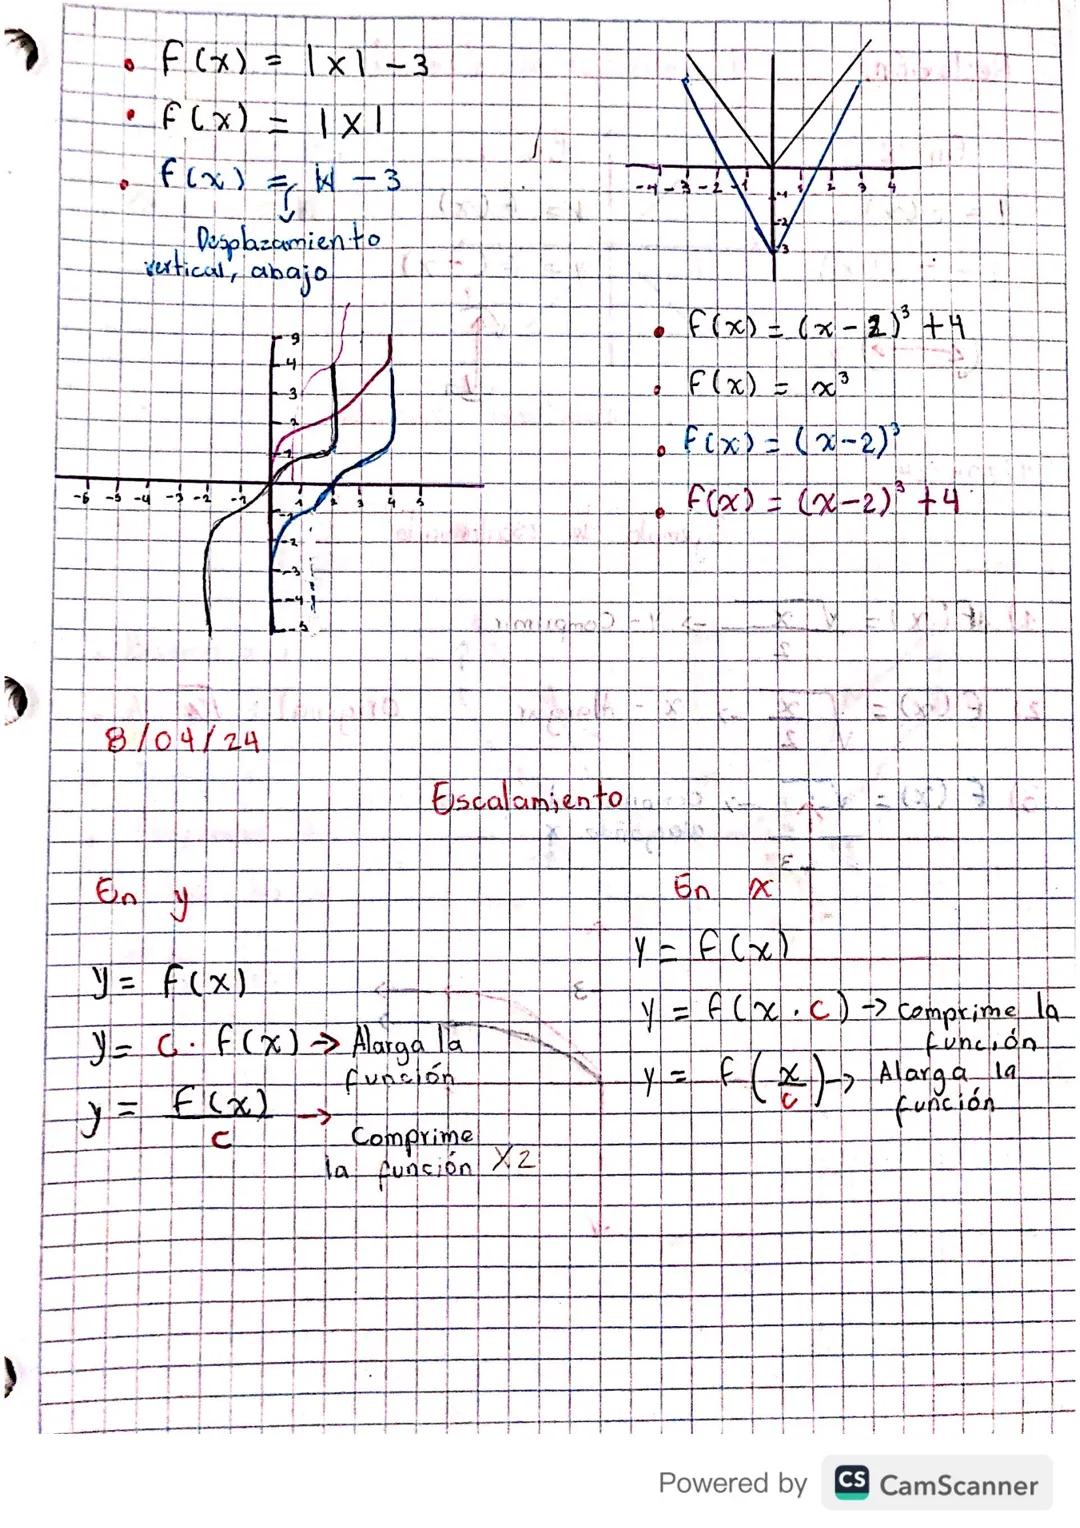 • f(x) = |x| - 3
• f(x) = |x|
• f(x) = |x| - 3
Desplazamiento
vertical, abajo
-4 -3 -2 -1 1 2 3 4
-1
-2
-3
• f(x) = (x-2)³ + 4
• f(x) = x³
• f(x) = (x-2)³
• f(x) = (x-2)³ + 4
9
4
3
2
1
-6 -5 -4 -3 -2 -1 1 2 3 4 5
-1
-2
-3
-4
-5
8/04/24
Escalamiento
En y
y = f(x)
y = c · f(x) → Alarga la
función
y = f(x)/c →
Comprime
la función X2
En x
y = f(x)
y = f(x · c) → comprime la
función
y = f(x/c) → Alarga la
función
Powered by CS CamScanner